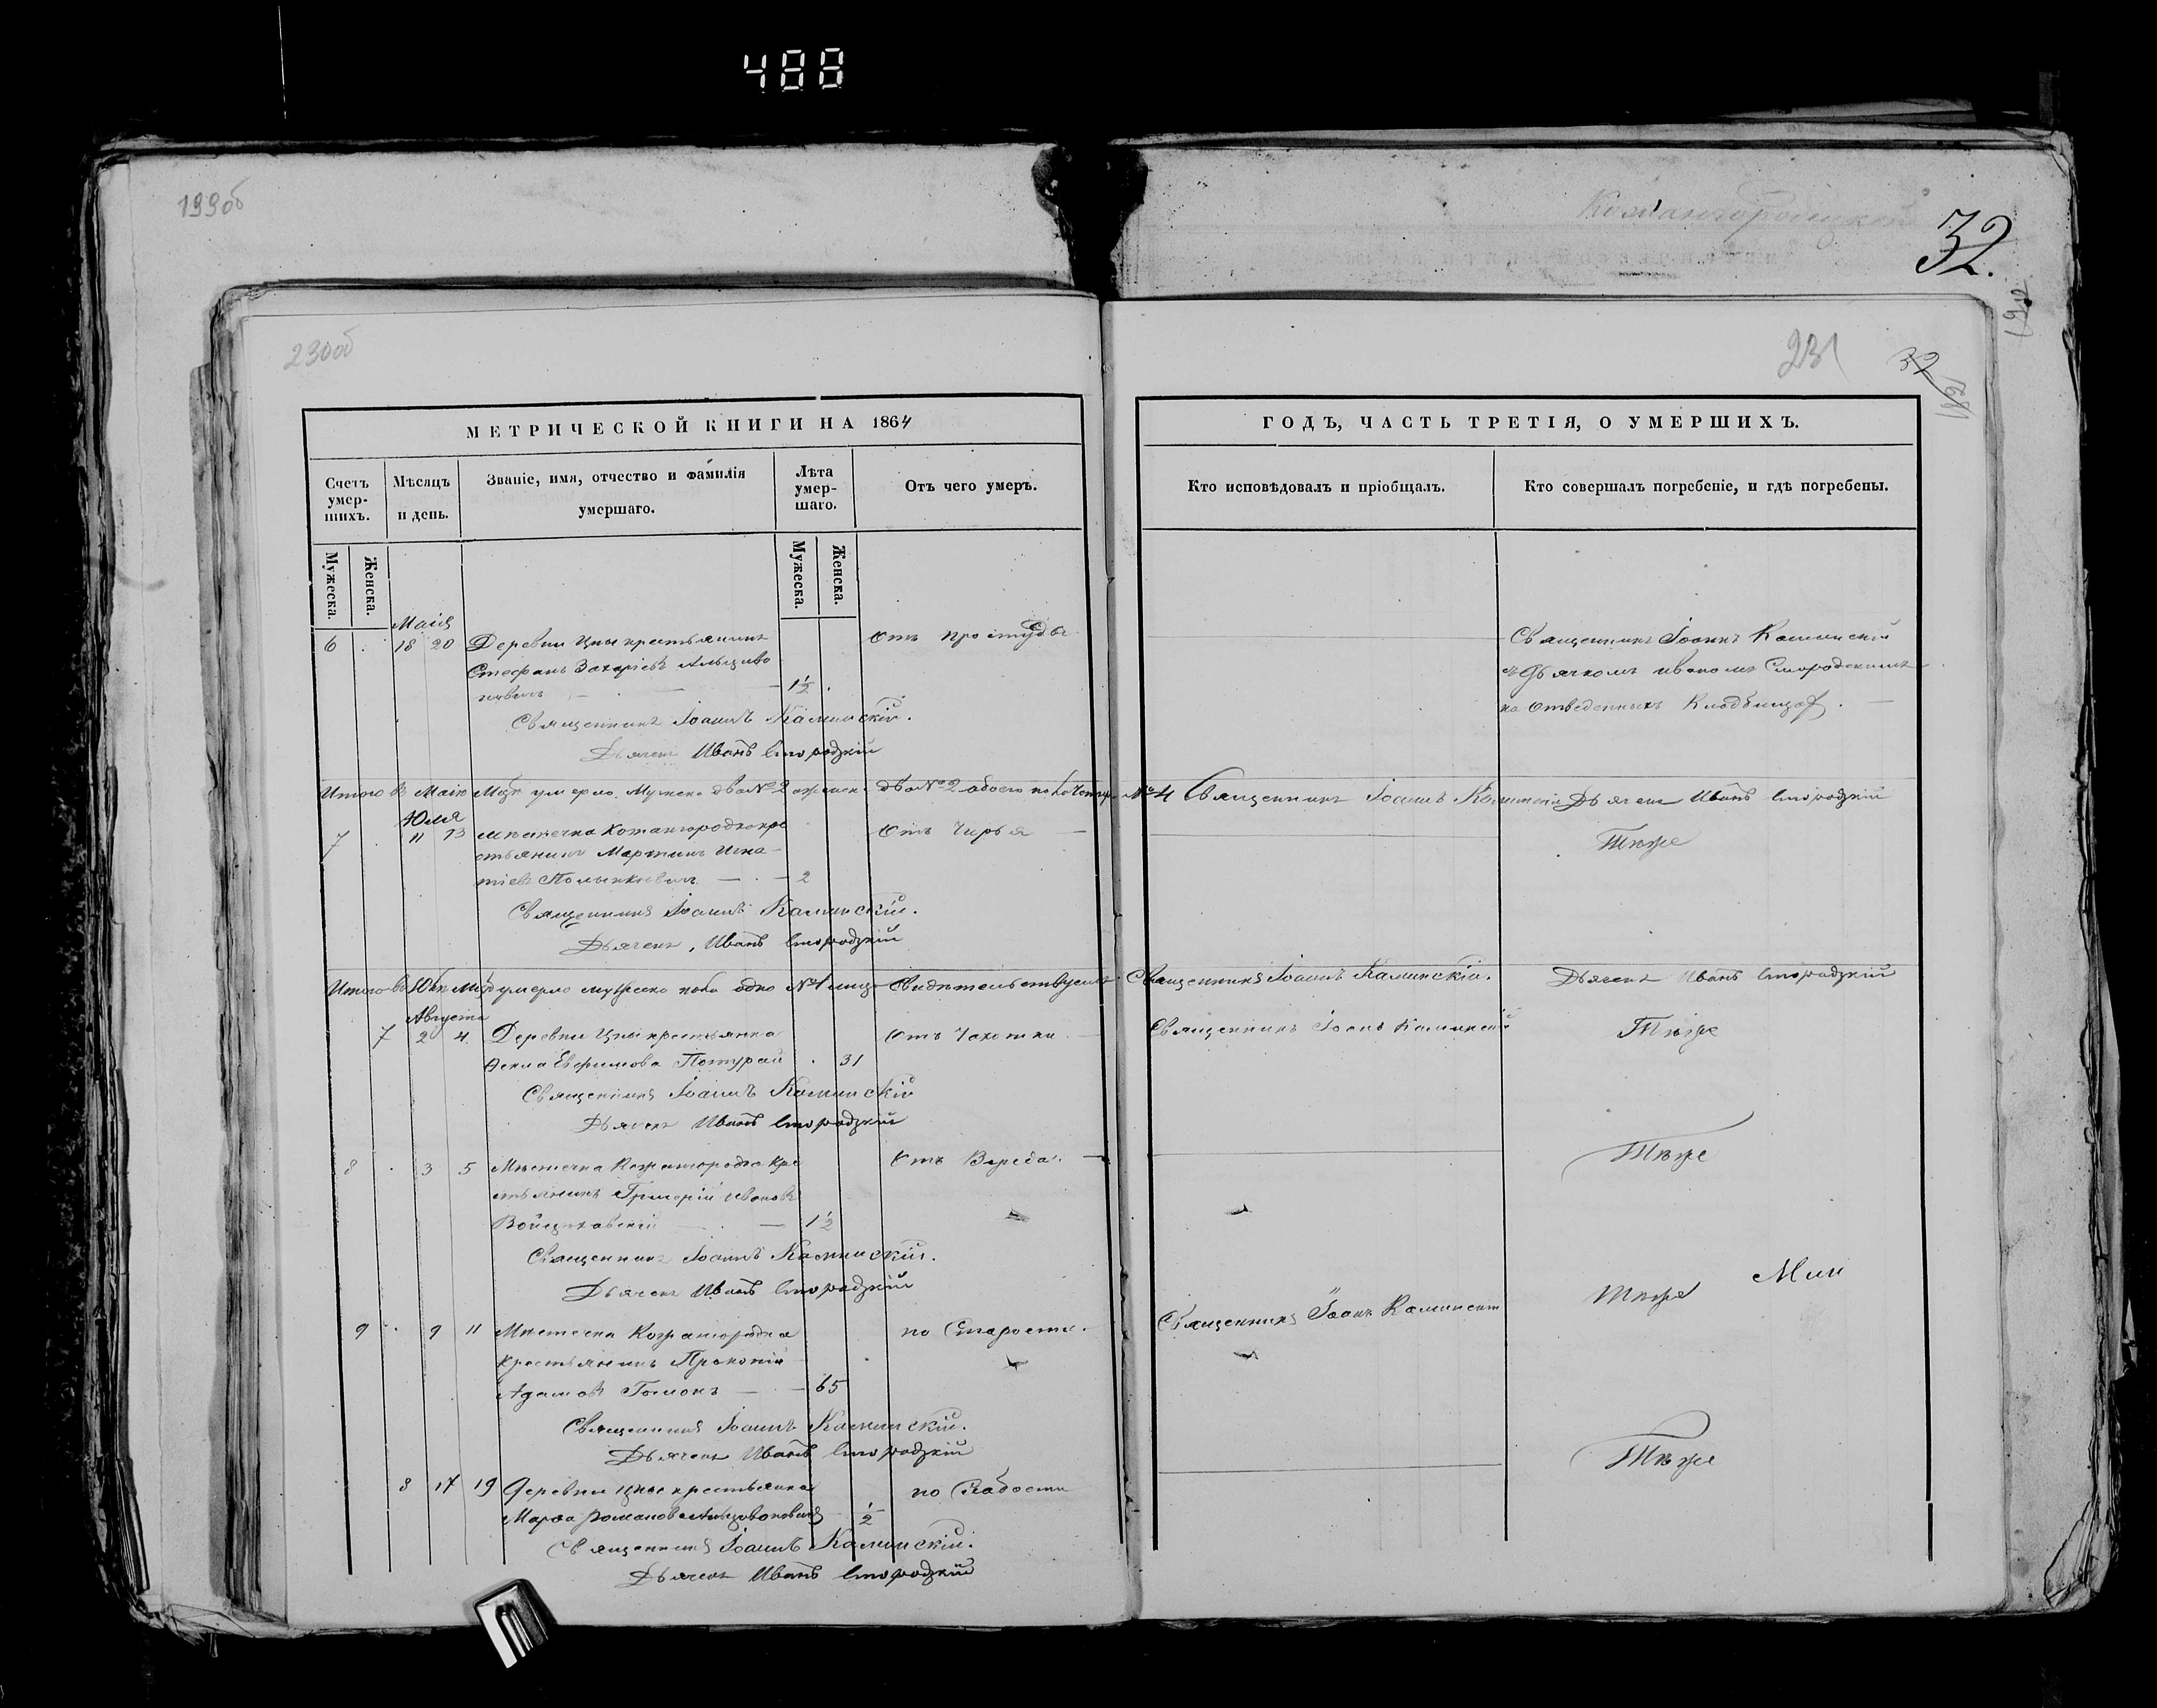 488
199об
32.
230об
231
32
МЕТРИЧЕСКОЙ КНИГИ НА 1864
ГОДЪ, ЧАСТЬ ТРЕТІЯ, О УМЕРШИХЪ.
Счетъ умер-шихъ.
Мѣсяцъ и день.
Званіе, имя, отчество и фамилія умершаго.
Лѣта умер-шаго.
Отъ чего умеръ.
Кто исповѣдовалъ и пріобщалъ.
Кто совершалъ погребеніе, и гдѣ погребены.
Мужеска.
Женска.
Мужеска.
Женска.
Маія
6 18 20 Деревни Цны крестьянинъ Отъ простуды Священникъ Іоаннъ Каминскій
Стефанъ Захаріевъ съ Дьячкомъ Иваномъ
1½ на отведенныхъ
Священникъ Іоаннъ Каминскій.
Дьячекъ Иванъ
Итого въ Маіѣ Мцѣ умерло Мужеска два № 2 женск. два № 2 обоего пола № 4 Священникъ Іоаннъ Каминскій Дьячекъ Иванъ
Юля
7 11 13 мѣстечка Кожангородка кре Отъ Чирья Тѣже
стьянинъ Мартинъ Игна-
тіевъ 2
Священникъ Іоаннъ Каминскій.
Дьячекъ Иванъ
Итого въ Юлѣ Мцѣ умерло мужеска пола одно № 1 лицо Свидѣтельствуемъ Священникъ Іоаннъ Каминскій. Дьячекъ Иванъ
Августа
7 2 4 Деревни Цны крестьянка Отъ Чахотки Священникъ Іоаннъ Каминскій Тѣже
Ѳекла Евфимова Потурай 31
Священникъ Іоаннъ Каминскій
Дьячекъ Иванъ
8 3 5 Мѣстечка Кожангородка кре Отъ Вереда. Тѣже
стьянинъ Григорій Ивановъ
Войцеховскій 1½
Священникъ Іоаннъ Каминскій.
Дьячекъ Иванъ
9 9 11 Мѣстечка Кожангородка по Старости. Священникъ Іоаннъ Каминскій Тѣже
крестьянинъ Прокопій
Адамовъ Гомонъ 65
Священникъ Іоаннъ Каминскій.
Дьячекъ Иванъ
8 17 19 Деревни Цны крестьянка по Слабости Тѣже
Марѳа Романова ½
Священникъ Іоаннъ Каминскій.
Дьячекъ Иванъ